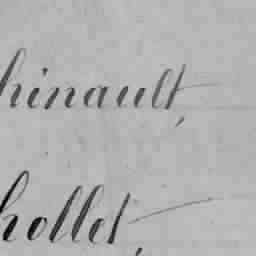 hinault,
hollet,